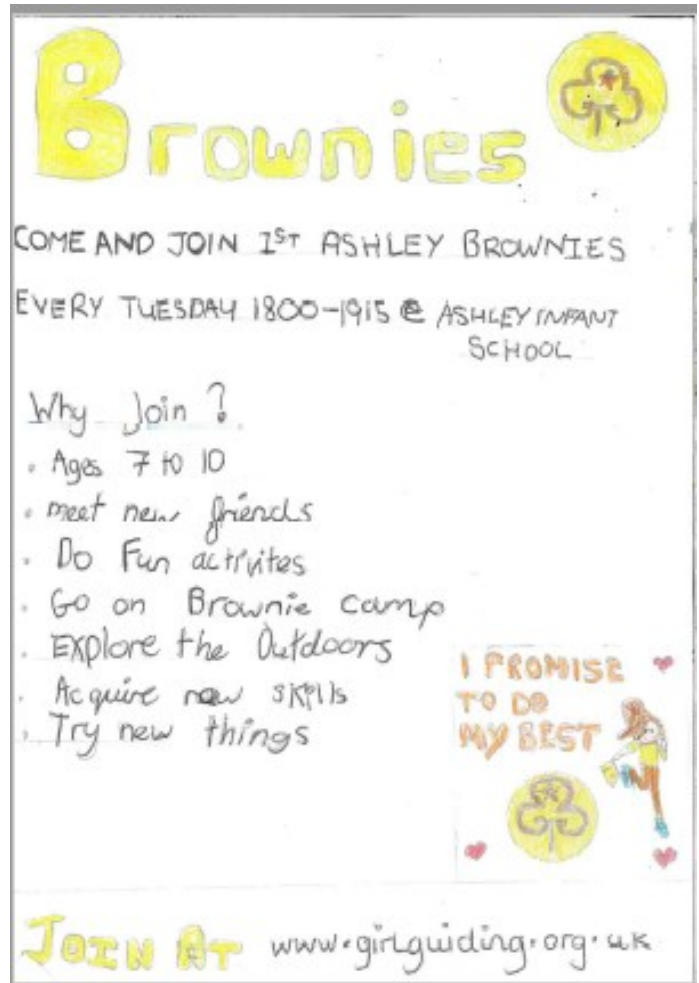 Brownies
COME AND JOIN 1ST ASHLEY BROWNIES
EVERY TUESDAY 1800-1915 @ ASHLEY INFANT
SCHOOL
Why Join ?
• Ages 7 to 10
• meet new friends
• Do Fun activites
• Go on Brownie camp
• Explore the Outdoors
• Acquire new skills
• Try new things
I PROMISE
TO DO
MY BEST
JOIN AT www.girlguiding.org.uk